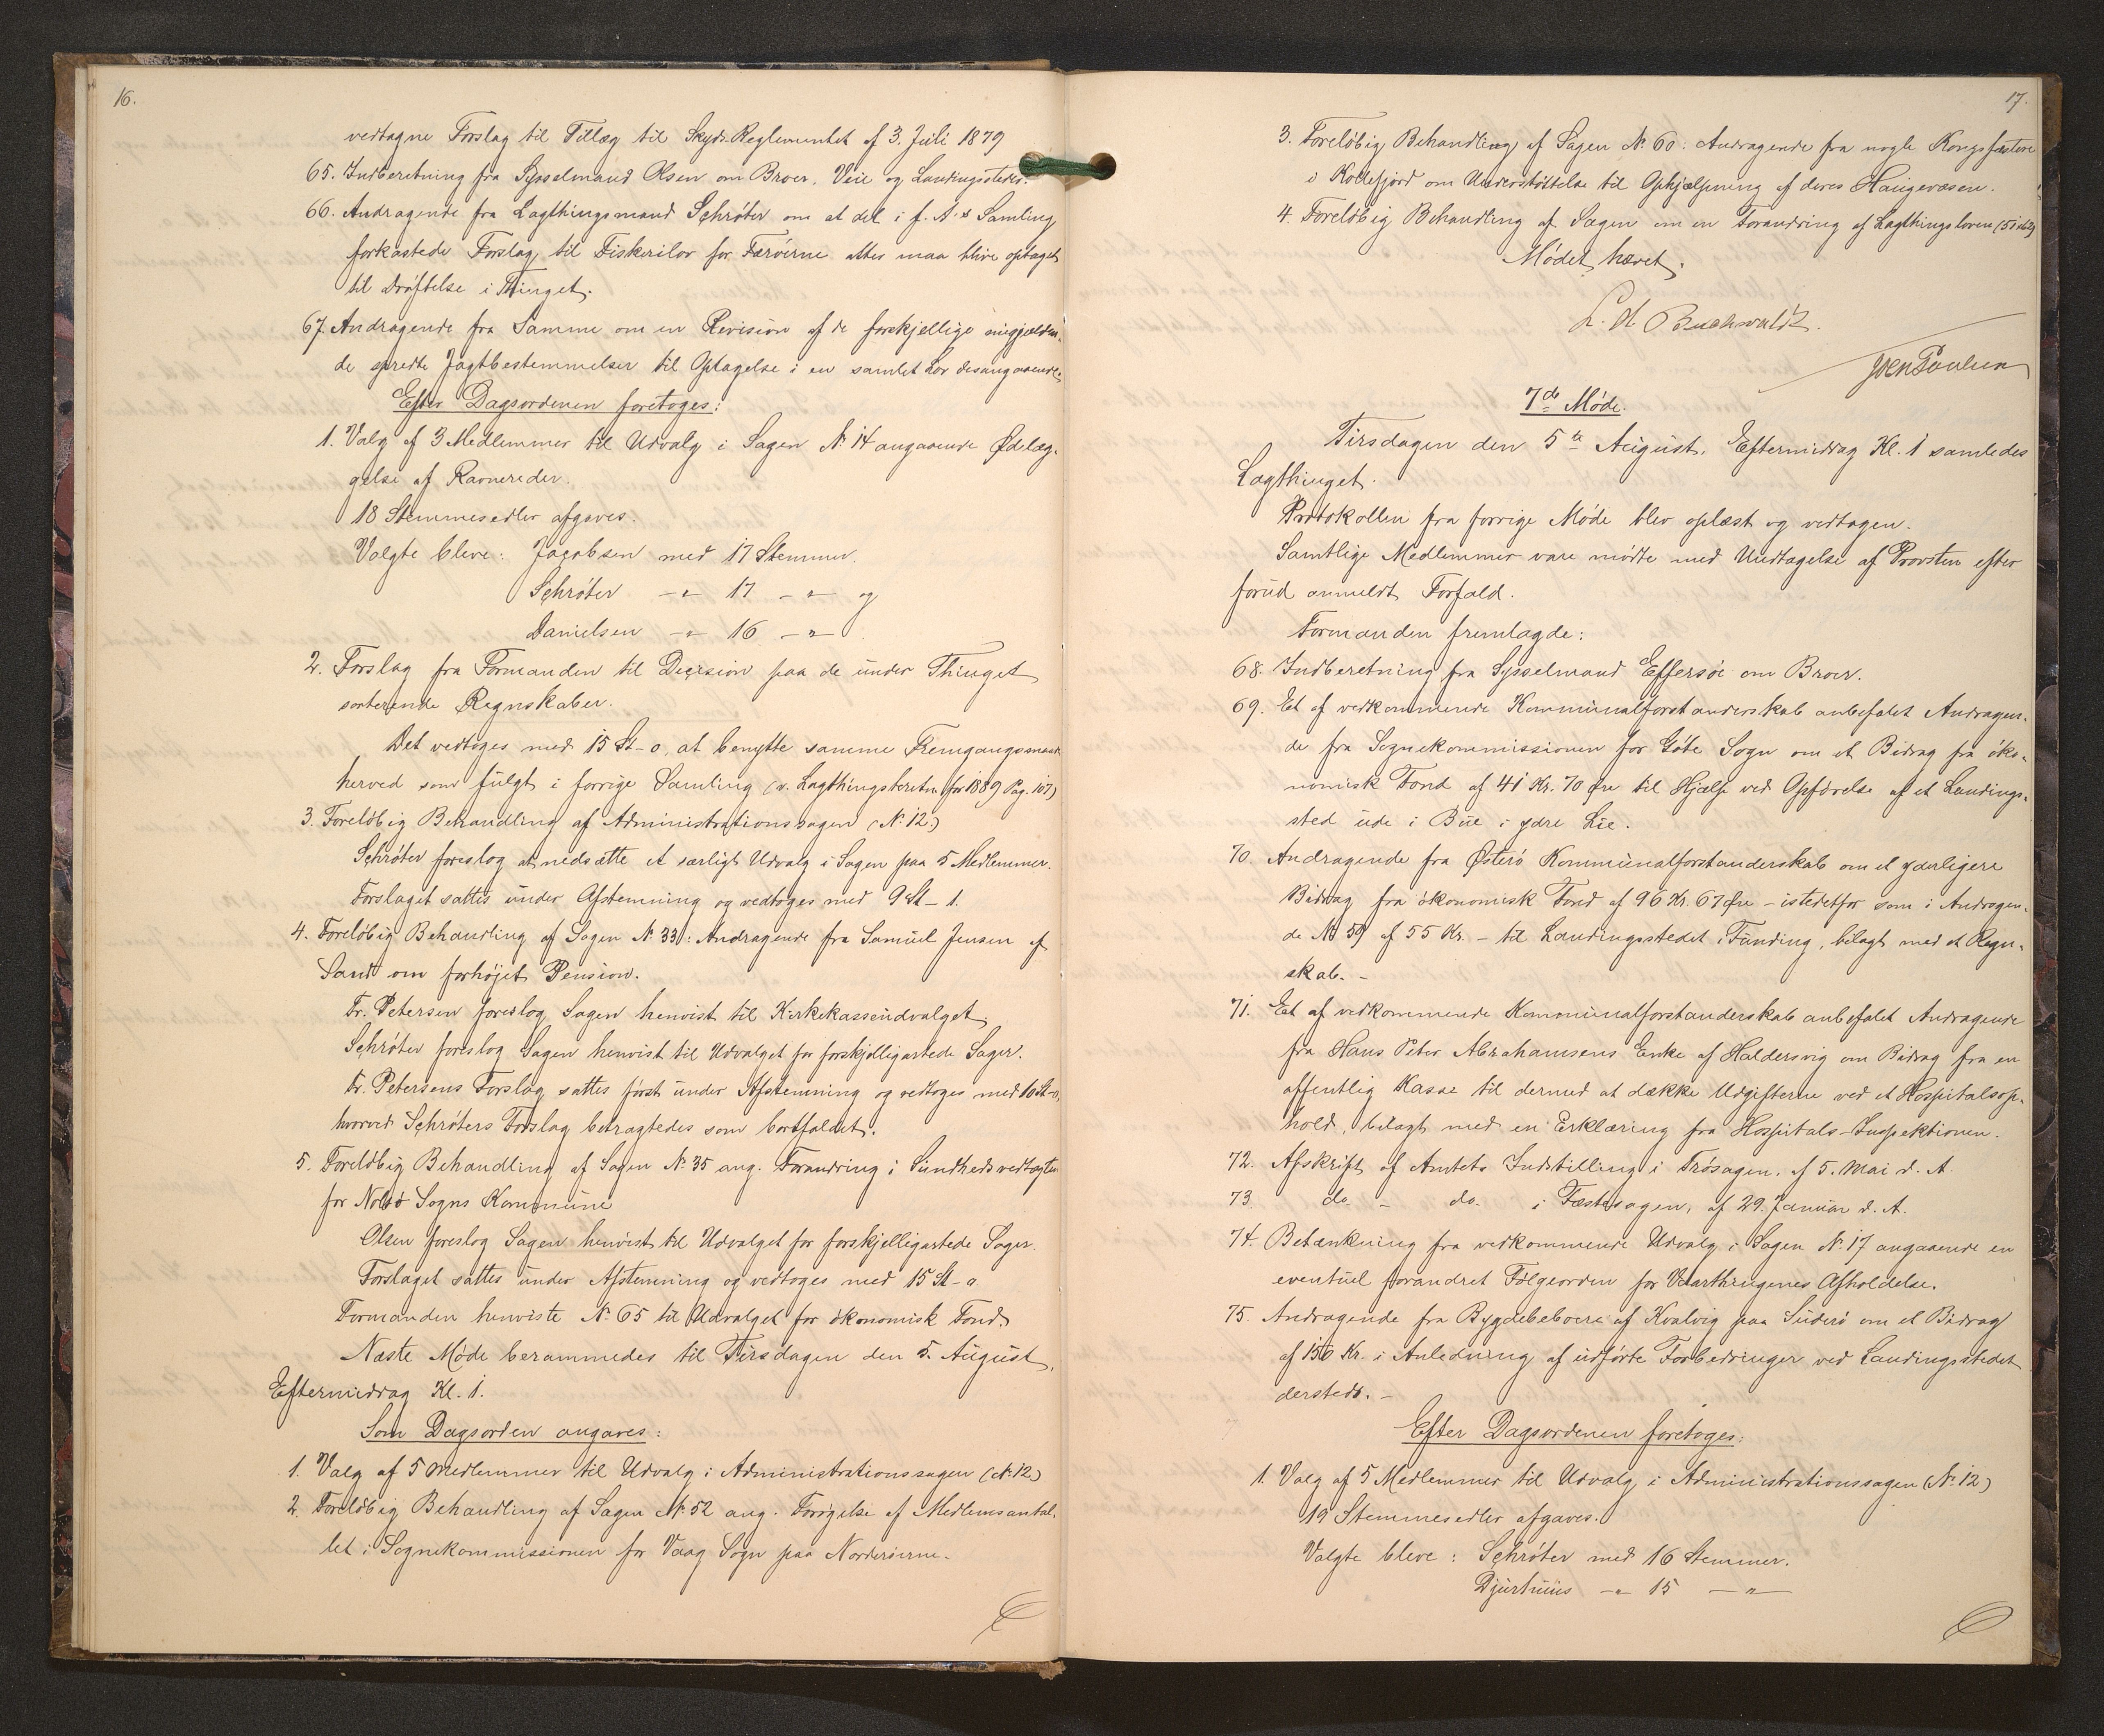 16.
vedtagne Forslag til Tillæg til Skyds-Reglementet af 3. Juli 1879
65. Indberetning fra Sysselmand Olsen om Broer, Veie og Landingssteder.
66. Andragende fra Lagthingsmand Schrøter om at det i f. A's Samling
forkastede Forslag til Fiskerilov for Færøerne atter maa blive optaget
til Drøftelse i Thinget.
67. Andragende fra Samme om en Revision af de forskjellige nugjælden-
de spredte Jagtbestemmelser til Optagelse i en samlet Lov desangaaende.
Efter Dagsordenen foretoges:
1. Valg af 3 Medlemmer til Udvalg i Sagen No. 14 angaaende Ødelæg-
gelse af Ravnereder.
18 Stemmesedler afgaves.
Valgte bleve: Jacobsen med 17 Stemmer.
Schrøter -"- 17 -"- og
Danielsen -"- 16 -"-
2. Forslag fra Formanden til Decision paa de under Thinget
sorterende Regnskaber.
Det vedtoges med 15 St-0, at benytte samme Fremgangsmaade
herved som fulgt i forrige Samling (v. Lagthingsberetn. for 1889 Pag. 107)
3. Foreløbig Behandling af Administrationssagen (No. 12)
Schrøter foreslog at nedsætte et særligt Udvalg i Sagen paa 5 Medlemmer.
Forslaget sattes under Afstemning og vedtoges med 9 St - 1.
4. Foreløbig Behandling af Sagen No. 33: Andragende fra Samuel Jensen af
Sand om forhøjet Pension.
Fr. Petersen foreslog Sagen henvist til Kirkekasseudvalget.
Schrøter foreslog Sagen henvist til Udvalget for forskjelligartede Sager.
Fr. Petersens Forslag sattes først under Afstemning og vedtoges med 10 St-0,
hvorved Schrøters Forslag betragtedes som bortfaldet.
5. Foreløbig Behandling af Sagen No. 35 ang. Forandring i Sundhedsvedtægten
for Nolsø Sogns Kommune
Olsen foreslog Sagen henvist til Udvalget for forskjelligartede Sager.
Forslaget sattes under Afstemning og vedtoges med 15 St-0
Formanden henviste No. 65 til Udvalget for økonomisk Fond.
Næste Møde berammedes til Tirsdagen den 5. August,
Eftermiddag Kl. 1.
Som Dagsorden angaves:
1. Valg af 5 Medlemmer til Udvalg i Administrationssagen (No. 12)
2. Foreløbig Behandling af Sagen No. 52 ang. Forøgelse af Medlemsantal-
let i Sognekommissionen for Vaag Sogn paa Norderøerne.
17.
3. Foreløbig Behandling af Sagen No. 60: Andragende fra nogle Kongsfæstere
i Kollefjord om Understøttelse til Ophjælpning af deres Haugevæsen.
4. Foreløbig Behandling af Sagen om en Forandring af Lagthingsloven
Mødet hævet.
L. A Buchwaldt.
Joen Poulsen
7de Møde.
Tirsdagen den 5te August, Eftermiddag Kl. 1 samledes
Lagthinget.
Protokollen fra forrige Møde blev oplæst og vedtagen.
Samtlige Medlemmer vare mødte med Undtagelse af Provsten efter
forud anmeldt Forfald.
Formanden fremlagde:
68. Indberetning fra Sysselmand Effersøe om Broer.
69. Et af vedkommende Kommunalforstanderskab anbefalet Andragen-
de fra Sognekommissionen for Gøte Sogn om et Bidrag fra øko-
nomisk Fond af 41 Kr. 70 Øre til Hjælp ved Opførelse af et Landings-
sted ude i Bue i ydre Lie.
70. Andragende fra Østerø Kommunalforstanderskab om et yderligere
Bidrag fra økonomisk Fond af 96 Kr. 67 Øre - istedetfor som i Andragen-
de No 59 af 55 Kr. - til Landingsstedet i Funding, bilagt med et Regn-
skab. -
71. Et af vedkommende Kommunalforstanderskab anbefalet Andragende
fra Hans Peter Abrahamsens Enke af Haldersvig om Bidrag fra en
offentlig Kasse til dermed at dække Udgifterne ved et Hospitalsop-
hold, bilagt med en Erklæring fra Hospitals-Inspektionen.
72. Afskrift af Amtets Indstilling i Trøsagen, af 5. Mai d. A.
73. do. - do. i Fæstesagen, af 29. Januar d. A.
74. Betænkning fra vedkommende Udvalg i Sagen No. 17 angaaende en
eventuel forandret Følgeorden for Vaarthingenes Afholdelse.
75. Andragende fra Bygdebeboere af Kvalvig paa Suderø om et Bidrag
af 150 Kr. i Anledning af udførte Forbedringer ved Landingsstedet
dersteds. -
Efter Dagsordenen foretoges:
1. Valg af 5 Medlemmer til Udvalg i Administrationssagen (No. 12)
19 Stemmesedler afgaves.
Valgte bleve: Schrøter med 16 Stemmer.
Djurhuus -"- 15 -"-